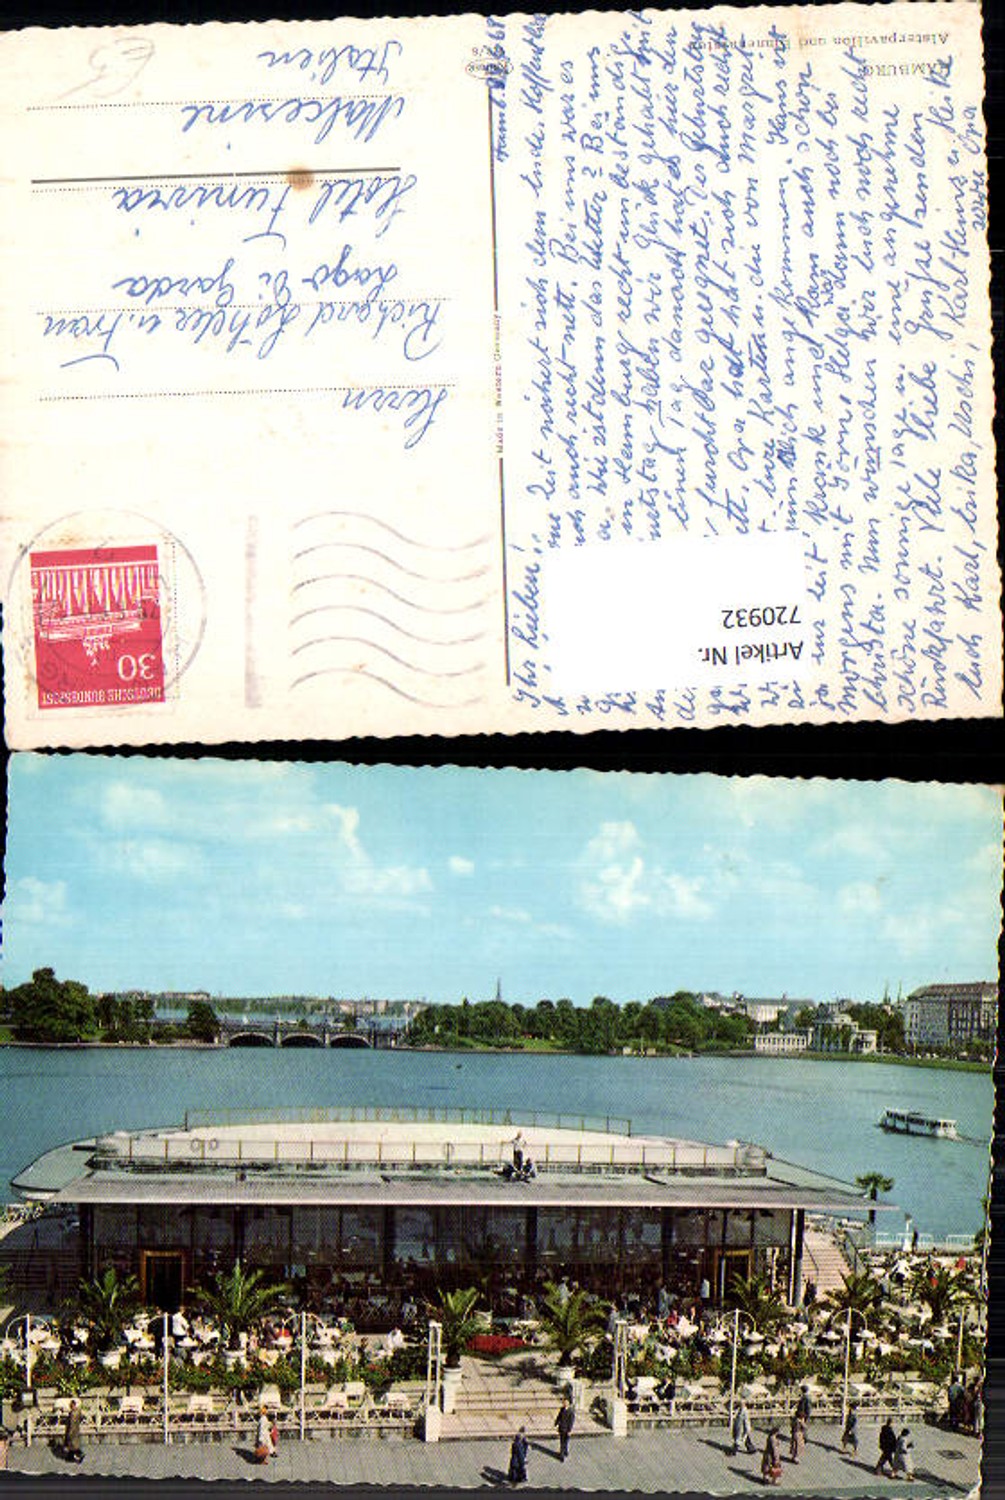 HAMBURG
Alsterpavillon und Binnenalster
Made in Western Germany
DEUTSCHE BUNDESPOST
30
Herrn
Richard u. Frau
Lago di Garda
Hotel
Malcesine
Italien
Ihr Lieben!
Zeit nähert sich dem Ende. Hoffentlich
auch recht nett. Bei uns war es
Wie ist denn das Wetter? Bei uns
in Hamburg recht unbeständig.
haben wir Glück gehabt mit
einen Tag, danach hat es hier den
furchtbar geregnet. Zes Geburtstag
Opa hat sich auch recht
Eure Karten u. die von Margrit
angekommen. Hans ist
zur Zeit krank und kam auch schon
morgens mit Helga war dann noch bei
Christa. Nun wünschen wir Euch noch recht
schöne sonnige Tage u. eine angenehme
Rückfahrt. Viele liebe Grüße senden
Euch Karl, Erika, Uschi, Karl Heinz u. Heike
sowie Opa
Artikel Nr.
720932
E5